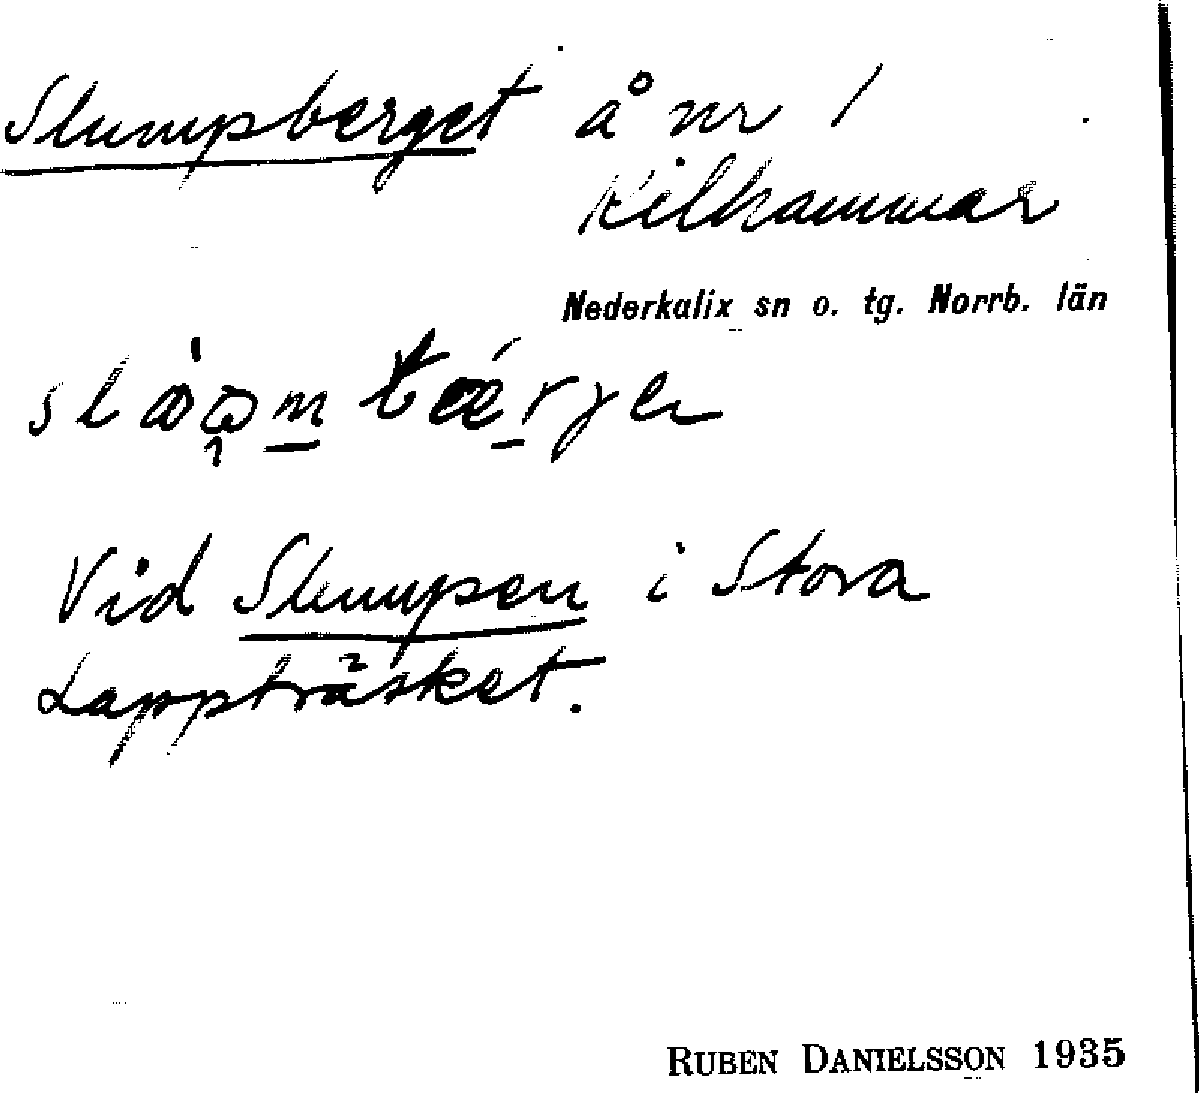 Slumpberget å nr 1
Kilhammar
Nederkalix sn o. tg. Norrb. län
Vid Slumpen i Stora
Lappträsket.
RUBEN DANIELSSON 1935